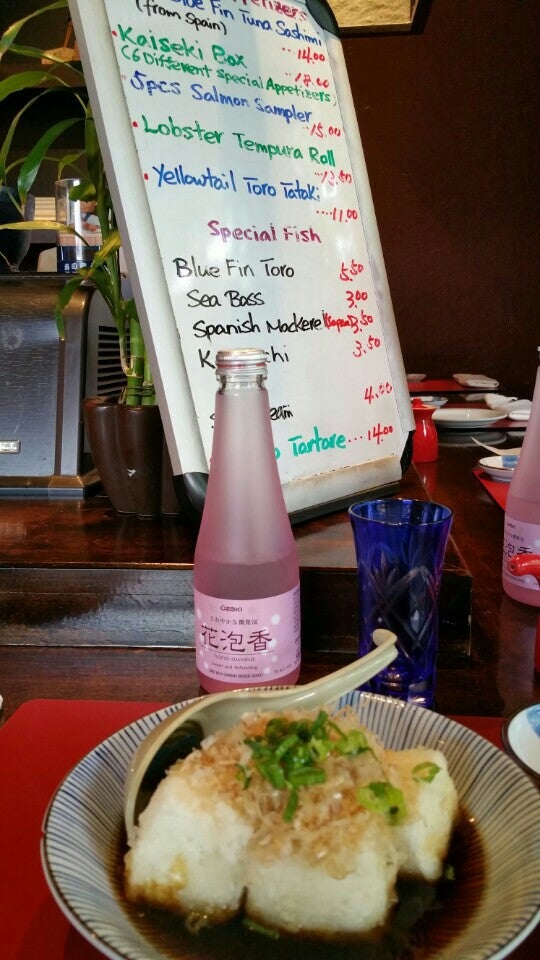 Appetizers
Blue Fin Tuna Sashimi
(from Spain) ...14.00
• Kaiseki Box
...18.00
(6 Different special Appetizers)
5pcs Salmon Sampler
...15.00
• Lobster Tempura Roll
• Yellowtail Toro Tataki
....11.00
Special Fish
Blue Fin Toro 5.50
Sea Bass 3.00
Spanish Mackerel 3.50
3.50
4.00
Tartare...14.00
OZEKI
さわやかな微発泡
花泡香
hana-awaka
花泡香